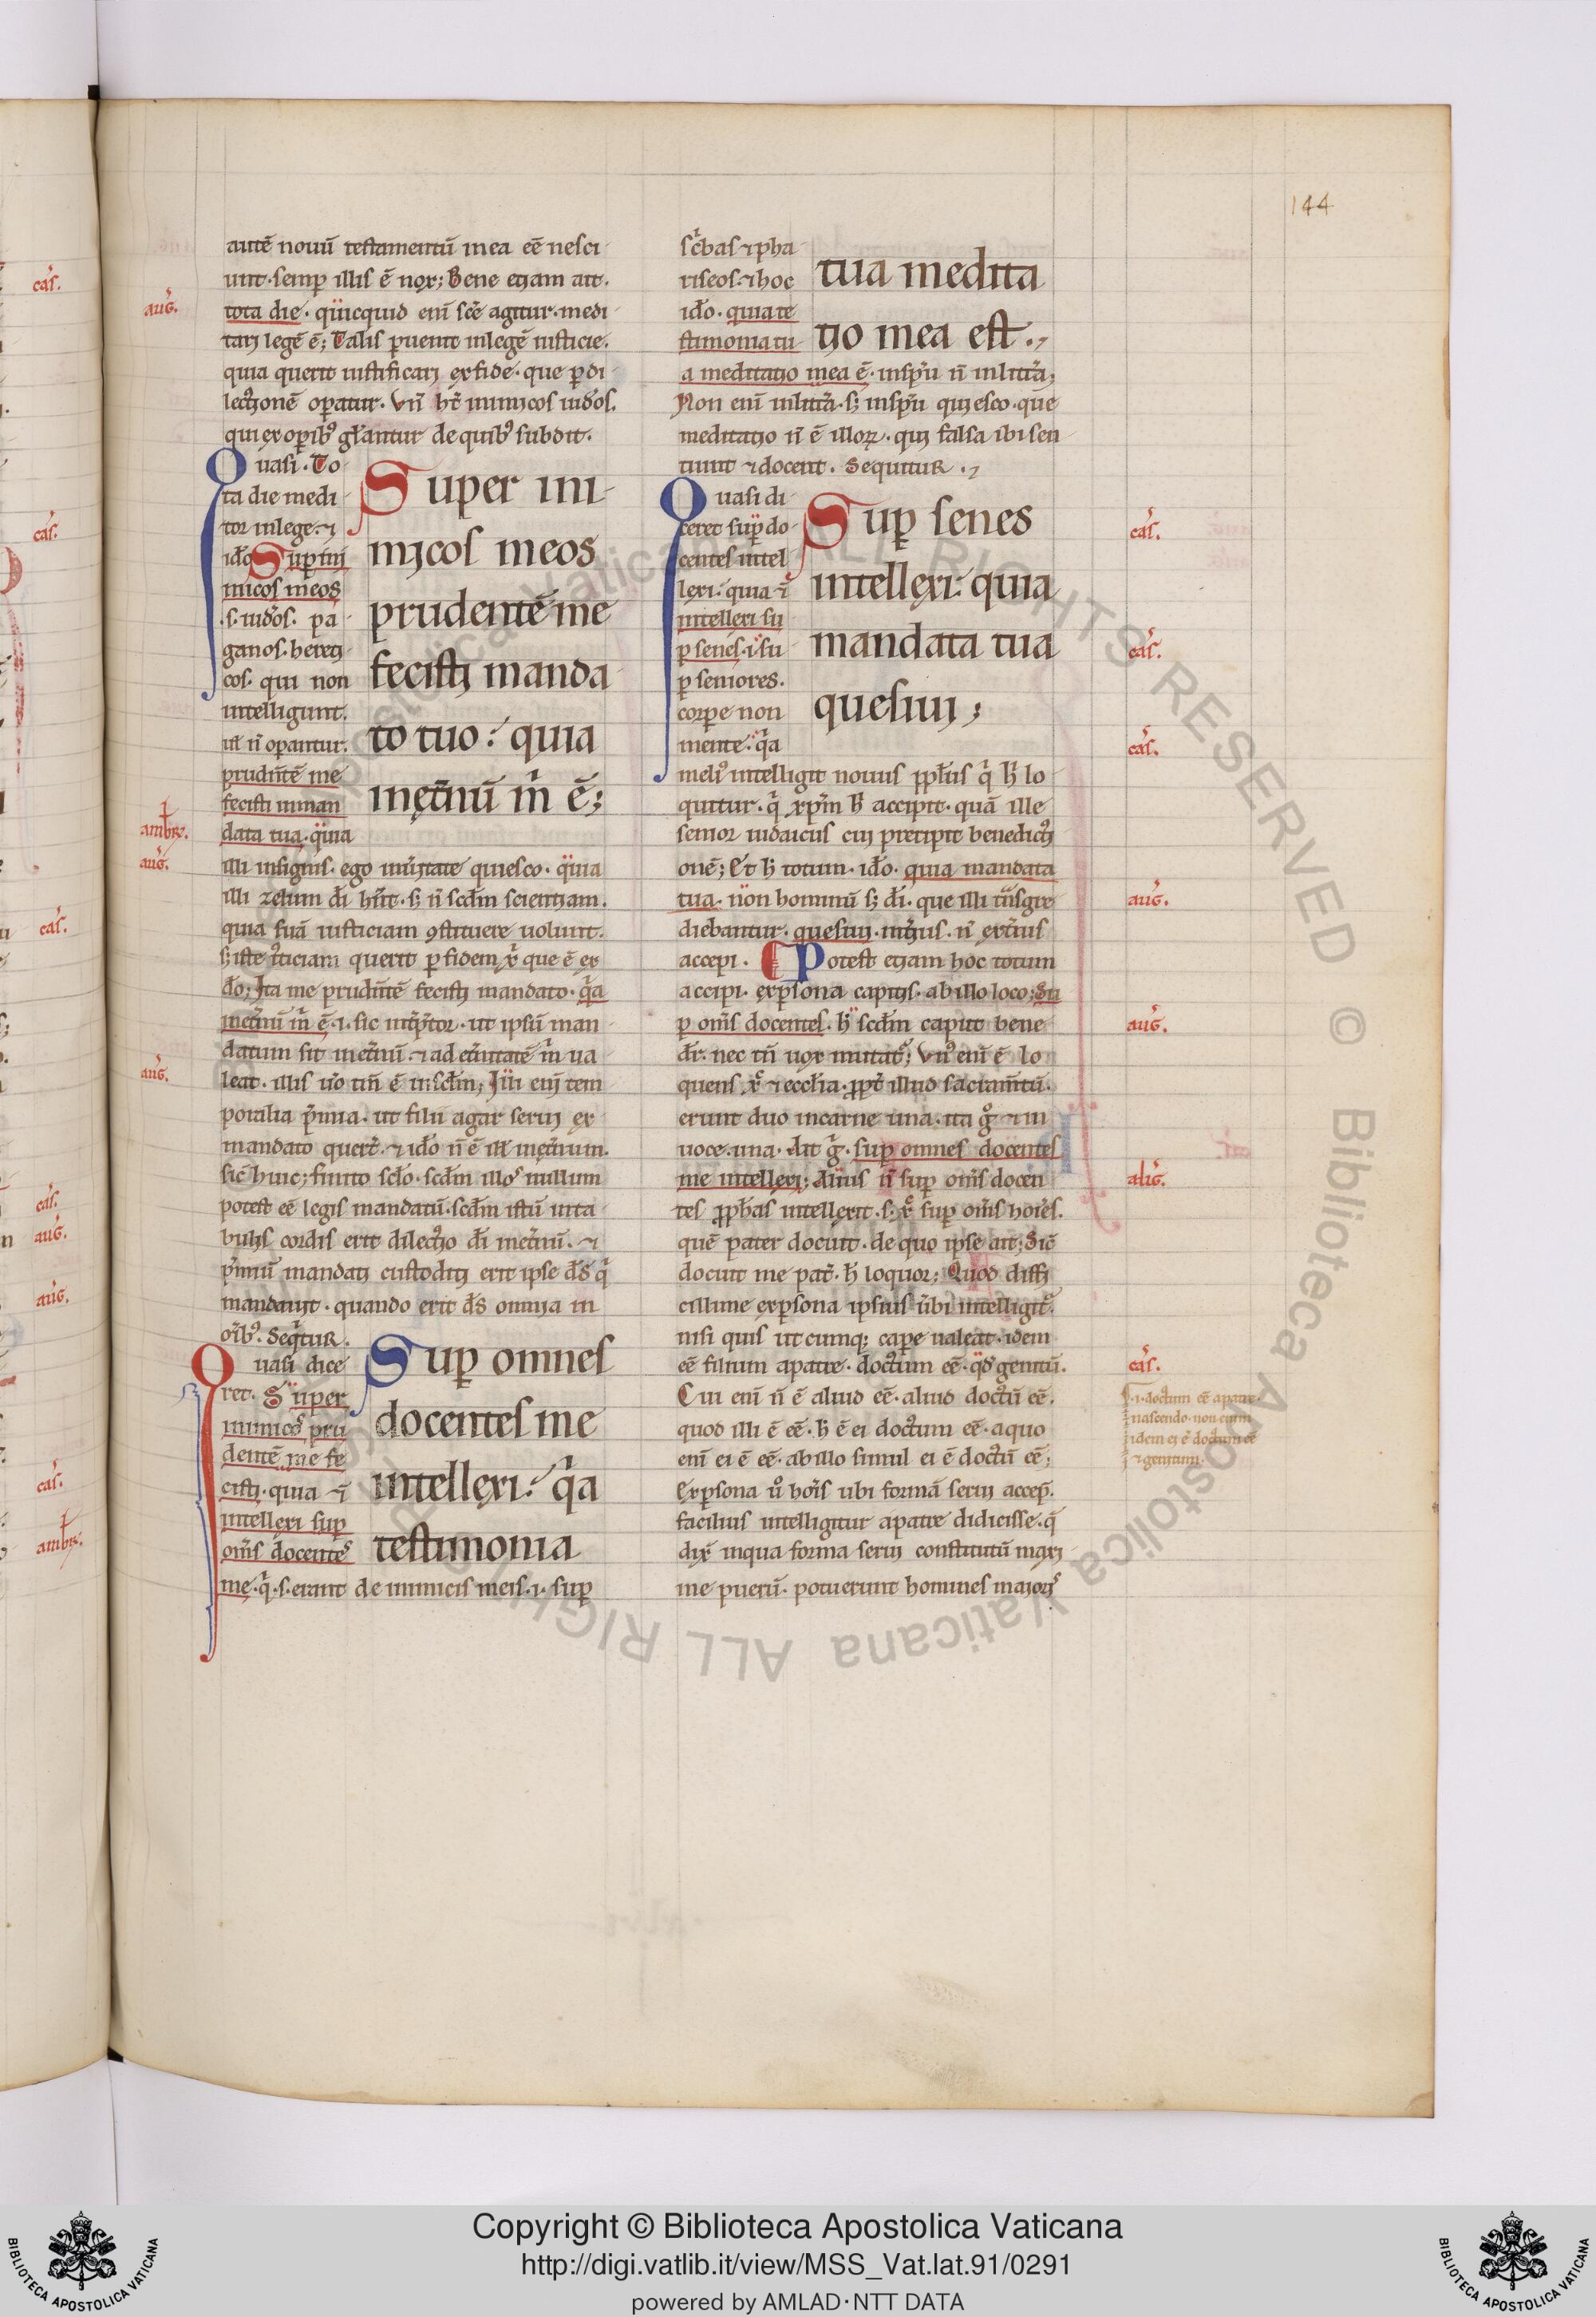 144
autē nouū testamentū mea eē nesci
unt. semꝑ illis ē nox; Bene etiam ait.
aug̃.
tota die. quicquid enī scē agitur. medi
tari legē ē; Talis ꝑuenit in legē iusticie.
quia querit iustificari ex fide. que ꝑ di
lectionē oꝑatur. Vn̄ hr̄ inimicos iudo̅s.
qui ex oꝑibꝰ gl̄antur de quibꝰ subdit.
Quasi. To
ta die medi
tor in lege. ⁊
ido̅ Suꝑ ini
micos meos
.s. iudo̅s. pa
ganos. hereti
cos. qui non
intelligunt.
ul̄ n̄ oꝑantur.
prudn̄tē me
fecisti in man
data tua. quia
Super ini
micos meos
prudentē me
fecisti manda
to tuo: quia
in et̄nū m̄ ē;
ambr̄.
aug̃.
illi in signis. ego in ueritate quiesco. quia
illi zelum dī hn̄t. s; n̄ scd̄m scientiam.
quia suā iusticiam ꝯstituere uolunt.
s; iste iusticiam querit ꝑ fidem xp̄i que ē ex
do̅; Ita me prudn̄tē fecisti mandato. q̄a
in et̄nū m̄ ē. i. sic int̄p̄tor. ut ipsū man
datum sit in et̄nū. ⁊ ad et̄nitatē m̄ ua
aug̃.
leat. illis uo̅ tm̄ ē in scl̄m; Illi enī tem
poralia p̄mia. ut filii agar serui ex
mandato quer̄t. ⁊ ido̅ n̄ ē ill̄ in et̄num.
sic̄ hinc; finito scl̄o. scd̄m illos nullum
potest eē legis mandatū. scd̄m istū in ta
bulis cordis erit dilectio dī in et̄nū. ⁊
p̄miū mandati custoditi erit ipse ds̄ q̄
mandauit. quando erit ds̄ omnia in
oīb;. Seq̄tur.
Quasi dice
ret. Super
inimicos pru
dentē me fe
cisti. quia ⁊
intellexi suꝑ
om̄s docentes
Suꝑ omnes
docentes me
intellexi: q̄a
testimonia
me. q̄. s. erant de inimicis meis. i. suꝑ
sc̄bas ⁊ pha
riseos. ⁊ hoc
ido̅. quia te
stimonia tu
tua medita
tio mea est.
a meditatio mea ē. in sp̄u n̄ in litt̄a;
Non enī in litt̄a. s; in sp̄u quiesco. que
meditatio n̄ ē illoꝝ. qui falsa ibi sen
tiunt ⁊ docent. Sequitur.
Quasi di
ceret suꝑ do
centes intel
lexi. quia ⁊
intellexi su
ꝑ senes. i. su
ꝑ seniores.
corꝑe non
mente. q̄a
Suꝑ senes
intellexi: quia
mandata tua
quesiui;
cas̄.
cas̄.
cas̄.
meliꝰ intelligit nouus ppl̄us q̄ h̄ lo
quitur. q̄ xp̄m h̄ accipit. quā ille
senior iudaicus cui precipit benedicti
onē; Et h̄ totum. ido̅. quia mandata
aug̃.
tua. non hominū s; dī. que illi tn̄sgre
diebantur. quesiui. int̄ius. n̄ ext̄ius
accepi. Potest etiam hoc totum
accipi. ex ꝑsona capitis. ab illo loco; Su
aug̃.
ꝑ om̄s docentes. h̄ scd̄m caput bene
dr̄. nec tn̄ uox mutatꝰ; Vnꝰ enī ē lo
quens xp̄c ⁊ eccl̄ia. ꝓpt̄ illud sacram̄tū.
erunt duo in carne una. ita go̅ ⁊ in
uoce una. Ait g̊. suꝑ omnes docentes
alig̃.
me intellexi; Alius n̄ suꝑ om̄s docen
tes ꝓph̄as intellexit. s. xp̄c suꝑ om̄s hoīes.
quē pater docuit. de quo ipse ait; Sic̄
docuit me pat̄. h̄ loquor; Quod diffi
cillime ex ꝑsona ipsius uerbi intelligitꝰ.
nisi quis utcumq; caꝑe ualeat. idem
cas̄.
eē filium a patre. doctum eē. qd̄ genitū.
Cui enī n̄ ē aliud eē. aliud doctū eē.
quod illi ē eē. h̄ ē ei doctum eē. a quo
enī ei ē eē. ab illo simul ei ē doctū eē;
.i. doctum eē a patre
nascendo. non enim
idem ei ē doctum eē
⁊ genitum.
Ex ꝑsona uo̅ hoīs ubi formā serui accep̄.
facilius intelligitur a patre didicisse. q̄
dix̄ in qua forma serui constitutū maxi
me puerū. potuerunt homines maiores
Copyright © Biblioteca Apostolica Vaticana
http://digi.vatlib.it/view/MSS_Vat.lat.91/0291
powered by AMLAD·NTT DATA